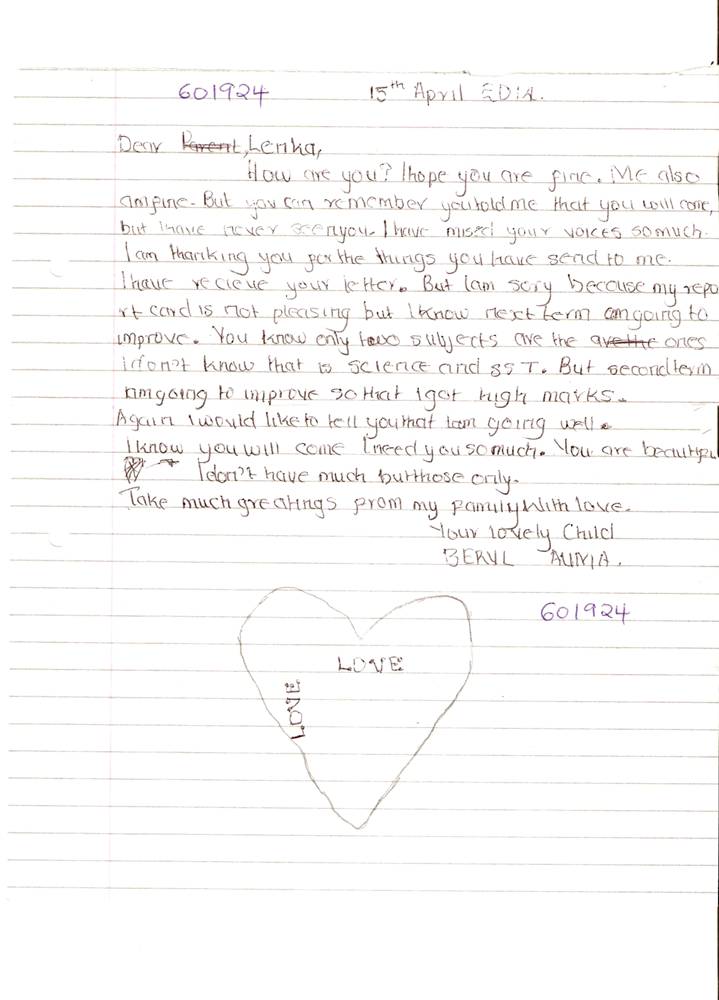 601924 15th April 2014.
Dear Parent, Lenka,
How are you? I hope you are fine. Me also
amfine. But you can remember you told me that you will come,
but I have never seen you. I have missed your voices somuch.
I am thanking you for the things you have send to me.
I have recieve your letter. But Iam sory because my repo
rt card is not pleasing but I know next term amgoing to
improve. You know only two subjects are the arethe ones
idon't know that is science and SST. But secondterm
amgoing to improve so that I got high marks.
Again I would like to tell you that Iam going well.
I know you will come I need you so much. You are beautiful
I don't have much but those only.
Take much greatings from my family with love.
Your lovely Child
BERYL AUMA.
601924
LOVE
LOVE